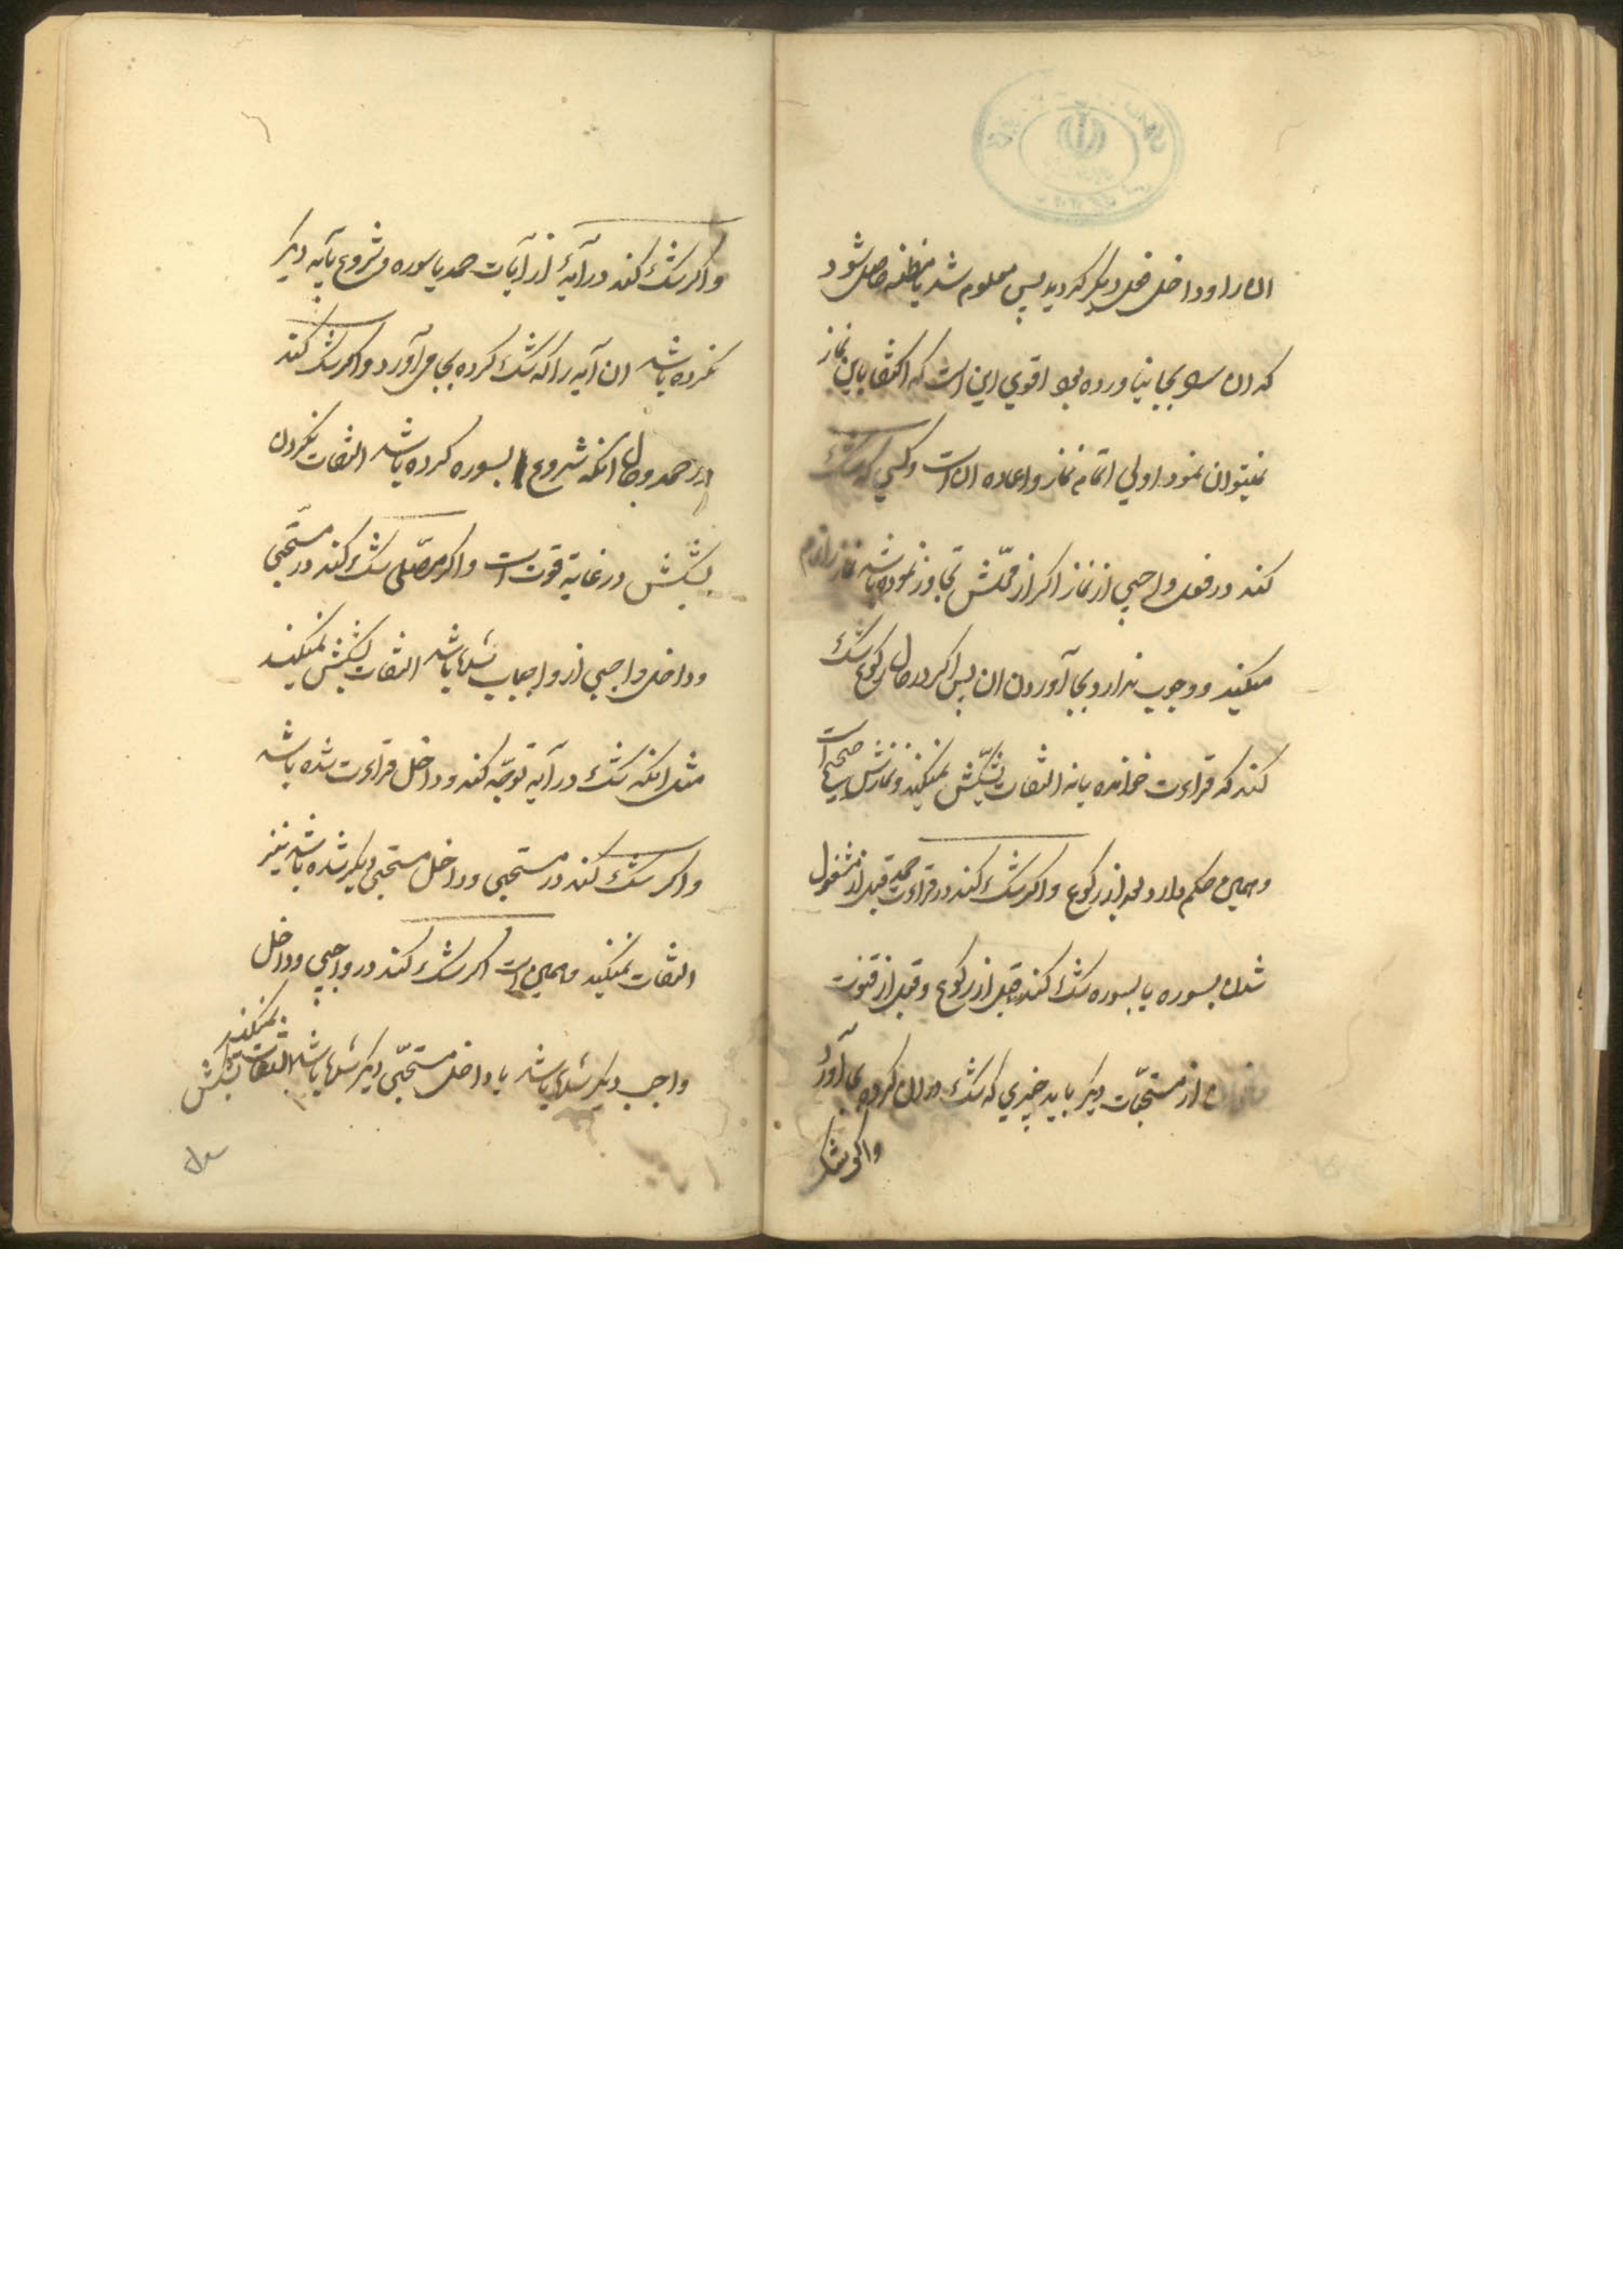 ان را و داخل فعل دیگر گردید پس معلوم شد یا مظنه حاصل شود
که ان را بجا نیاورده بود اقوی این است که اکتفا باین نماز
نمیتوان نمود اولی اتمام نماز و اعاده ان است و کسی که شک
کند در فعل واجبی از نماز اکر از محلّش تجاوز نموده باشد نماز را تمام
میکند و وجوب ندارد بجا آوردن ان پس اکر در حال رکوع شک
کند که قراءت خوانده یا نه التفات بشکّش نمیکند و نمازش صحیح است
و همین حکم دارد بعد از رکوع و اکر شک کند در قراءت حمد قبل از مشغول
شدن بسوره یا بسوره شک کند قبل از رکوع و قبل از قنوت
از مستحبّات دیکر باید چیزی که شک در ان کرده بجا آورد
و اکر شک
و اکر شک کند در آیهٔ از آیات حمد یا سوره و شروع بآیه دیکر
نکرده باشد ان آیه را که شک کرده بجا می آورد و اکر شک کند
در حمد و حال انکه شروع بسوره کرده باشد التفات نکردن
بشکش در غایة قوت است و اکر مصّلی شک کند در مستّحبی
و داخل واجبی از واجبات شده باشد التفات بشکش نمیکند
مثل انکه شک در آیه توجّه کند و داخل قراءت شده باشد
و اکر شک کند در مستحبی و داخل مستحبی دیکر شده باشد نیز
التفات نمیکند و همین است اکر شک کند در واجبی و داخل
واجب دیکر شده باشد یا داخل مستحبّی دیکر شده باشد التفات بشکش
نمیکند